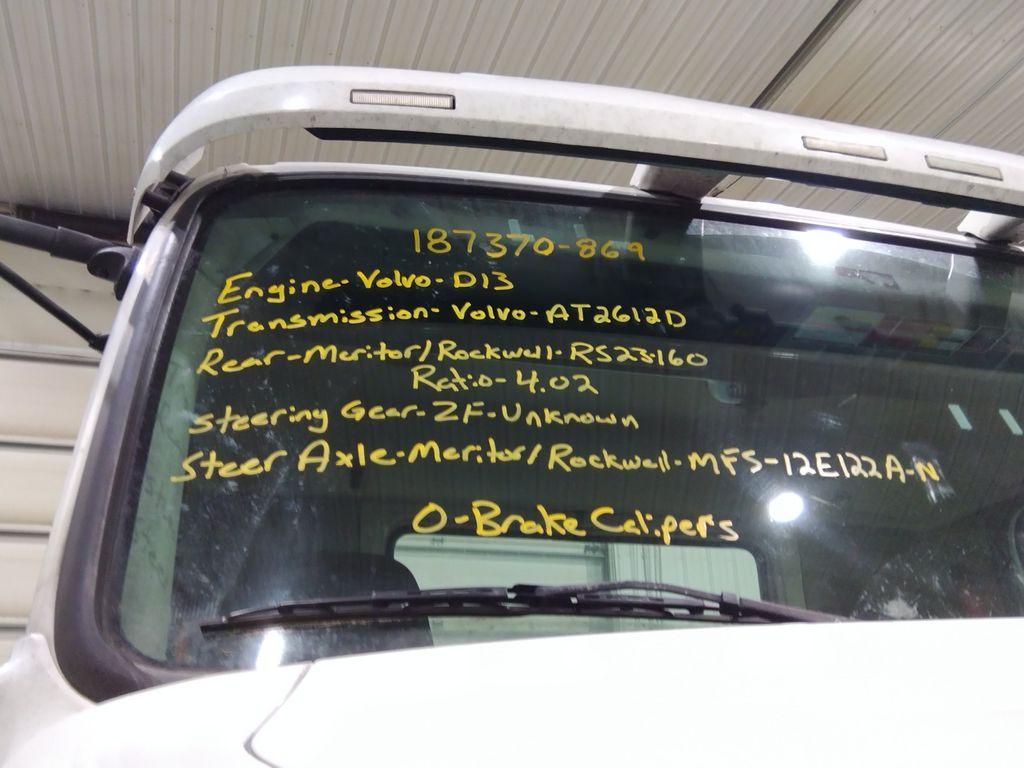 187370-869
Engine-Volvo-D13
Transmission-Volvo-AT2612D
Rear-Meritor/Rockwell-RS23-160
Ratio-4.02
Steering Gear-ZF-Unknown
Steer Axle-Meritor/Rockwell-MFS-12E122A-N
0-Brake Calipers